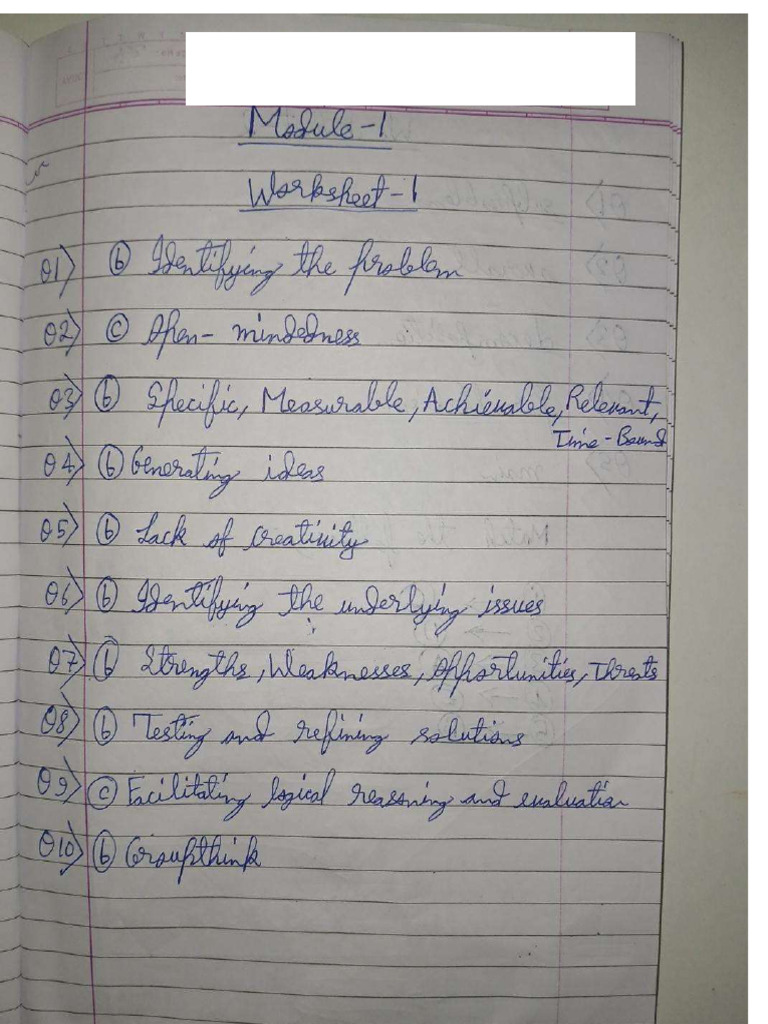 Module-1
Worksheet-1
Q1) (b) Identifying the problem
Q2) (c) Open-mindedness
Q3) (b) Specific, Measurable, Achievable, Relevant,
Time-Bound
Q4) (b) Generating ideas
Q5) (b) Lack of creativity
Q6) (b) Identifying the underlying issues
Q7) (b) Strengths, Weaknesses, Opportunities, Threats
Q8) (b) Testing and refining solutions
Q9) (c) Facilitating logical reasoning and evaluation
Q10) (b) Groupthink